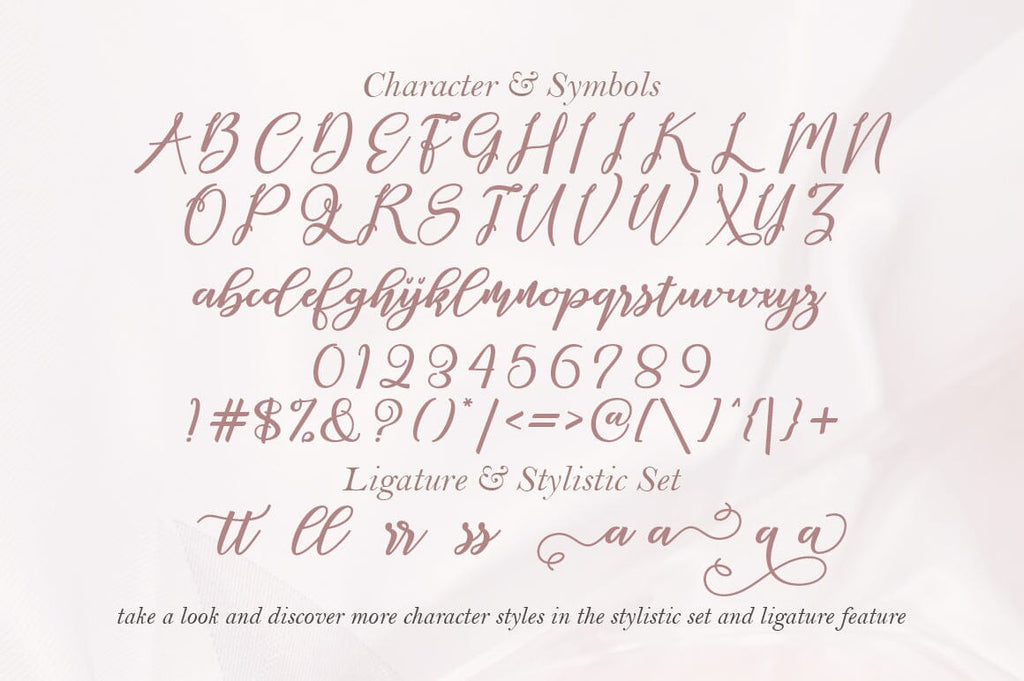 Character & Symbols
A B C D E F G H I J K L M N
O P Q R S T U V W X Y Z
abcdefghijklmnopqrstuvwxyz
0123456789
!#$%&?()*/<=>@[\]^{|}+
Ligature & Stylistic Set
tt ll rr ss a a a a
take a look and discover more character styles in the stylistic set and ligature feature